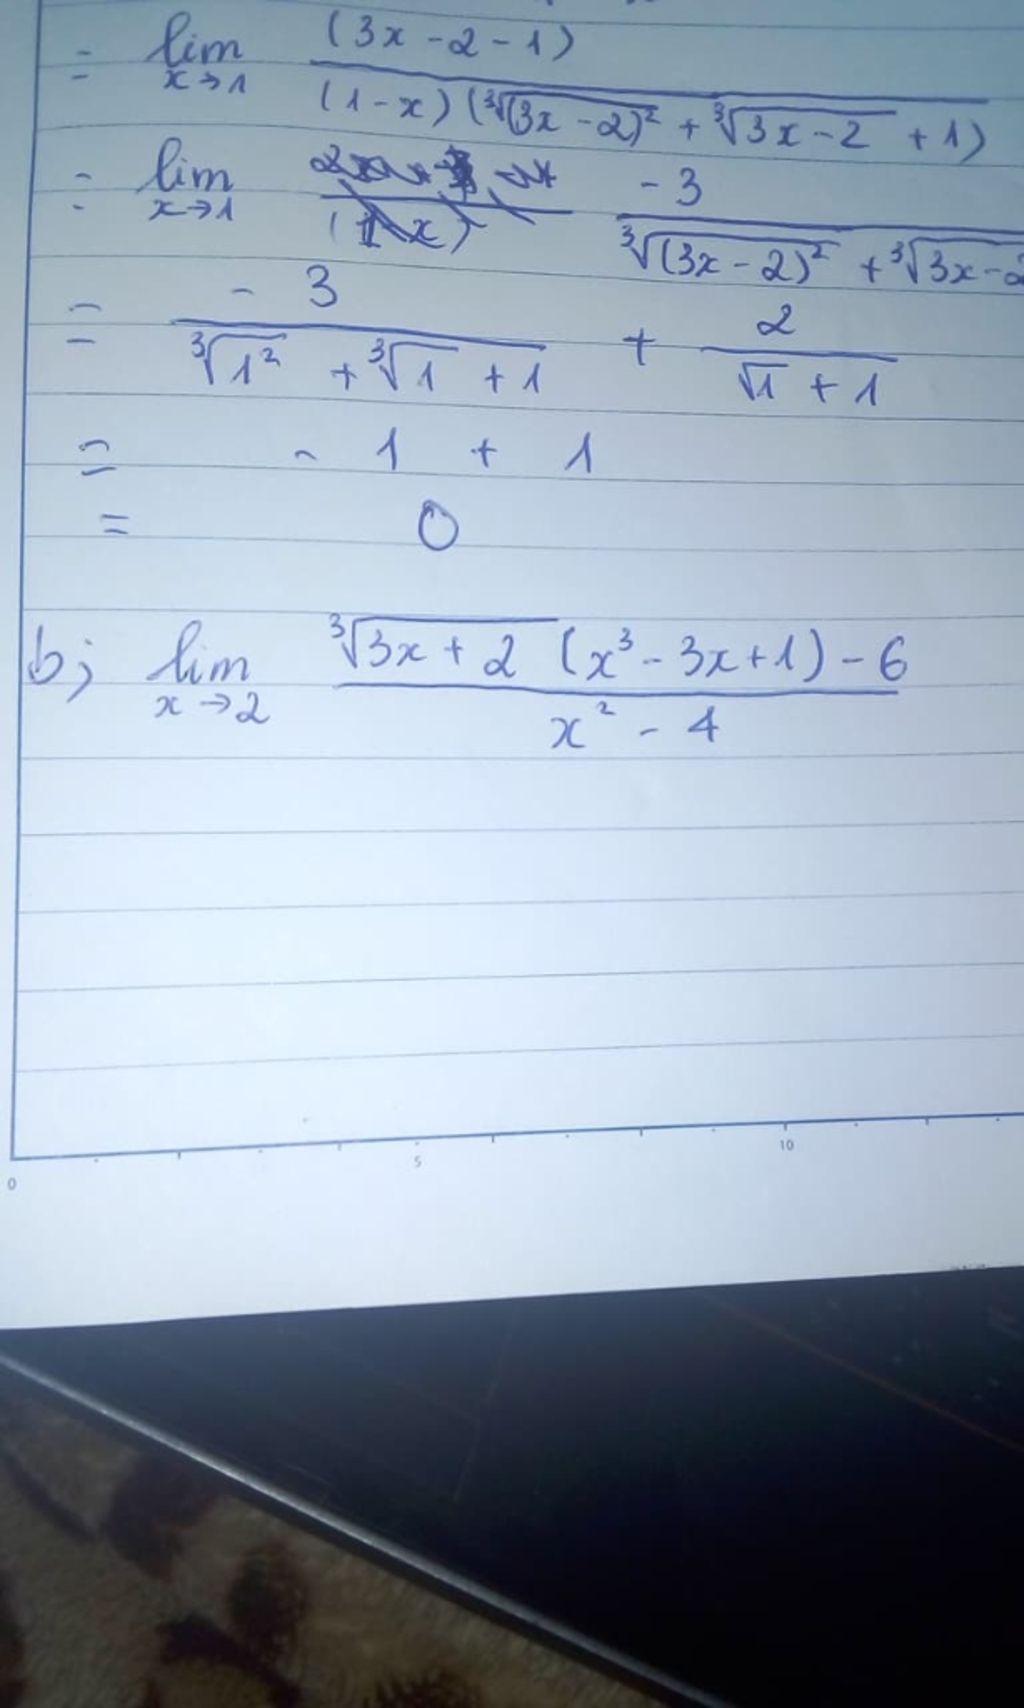 = lim x→1 (3x - 2 - 1) / (1 - x) (∛(3x - 2)² + ∛3x - 2 + 1)
= lim x→1 - 3 / ∛(3x - 2)² + ∛3x - 2
= - 3 / ∛1² + ∛1 + 1 + 2 / √1 + 1
= - 1 + 1
= 0
b; lim x→2 ∛3x + 2 (x³ - 3x + 1) - 6 / x² - 4
0 5 10